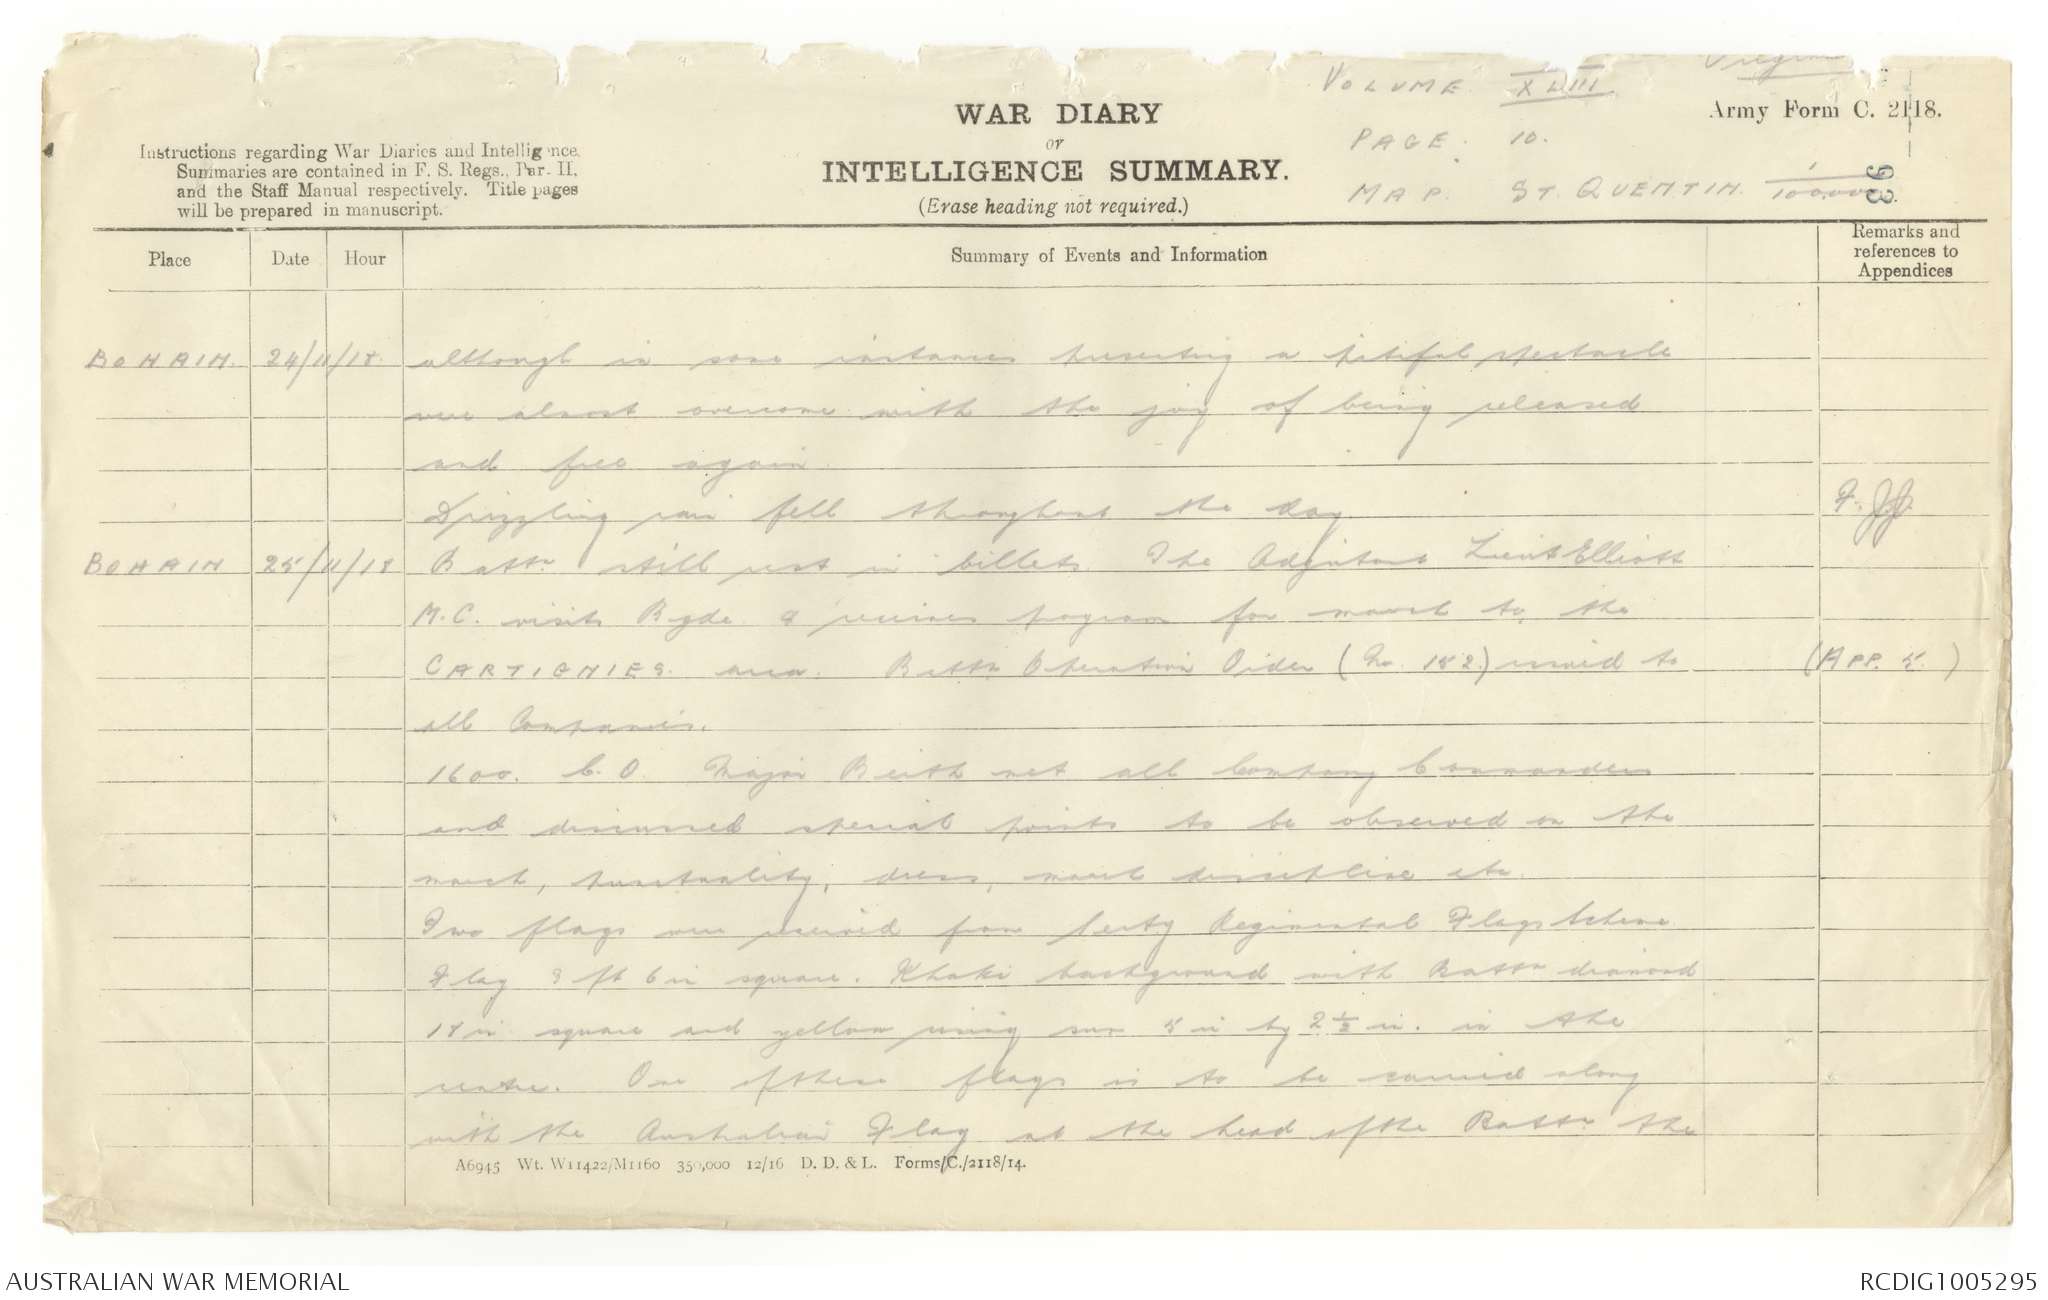 Original
VOLUME. XLIII
Army Form C. 2118.
WAR DIARY
or
INTELLIGENCE SUMMARY.
(Erase heading not required.)
Instructions regarding War Diaries and Intelligence
Summaries are contained in F. S. Regs., Part II,
and the Staff Manual respectively. Title pages
will be prepared in manuscript.
PAGE. 10.
MAP. ST. QUENTIN. 1/100,000.
36
Place Date Hour Summary of Events and Information Remarks and references to Appendices
BOHAIN. 24/11/18. although in some instances presenting a pitiful spectacle
were almost overcome with the joy of being released
and free again.
Drizzling rain fell throughout the day
BOHAIN 25/11/18 Battn still rest in billets. The Adjutant Lieut Elliott
M.C. visits Bgde & receives program for march to the
CARTIGNIES area. Battn Operation Order (No. 152.) issued to (APP. 5.)
all Companies.
1600. C.O. Major Beith met all Company Commanders
and discussed special points to be observed on the
march, punctuality, dress, march discipline etc.
Two flags were received from Secty Regimental Flags Scheme.
Flag 3 ft 6 in square. Khaki background with Battn diamond
18 in square and yellow rising sun 5 in by 2 1/2 in. in the
centre. One of these flags is to be carried along
with the Australian Flag at the head of the Battn the
A6945 Wt. W11422/M1160 350,000 12/16 D. D. & L. Forms/C./2118/14.
AUSTRALIAN WAR MEMORIAL
RCDIG1005295